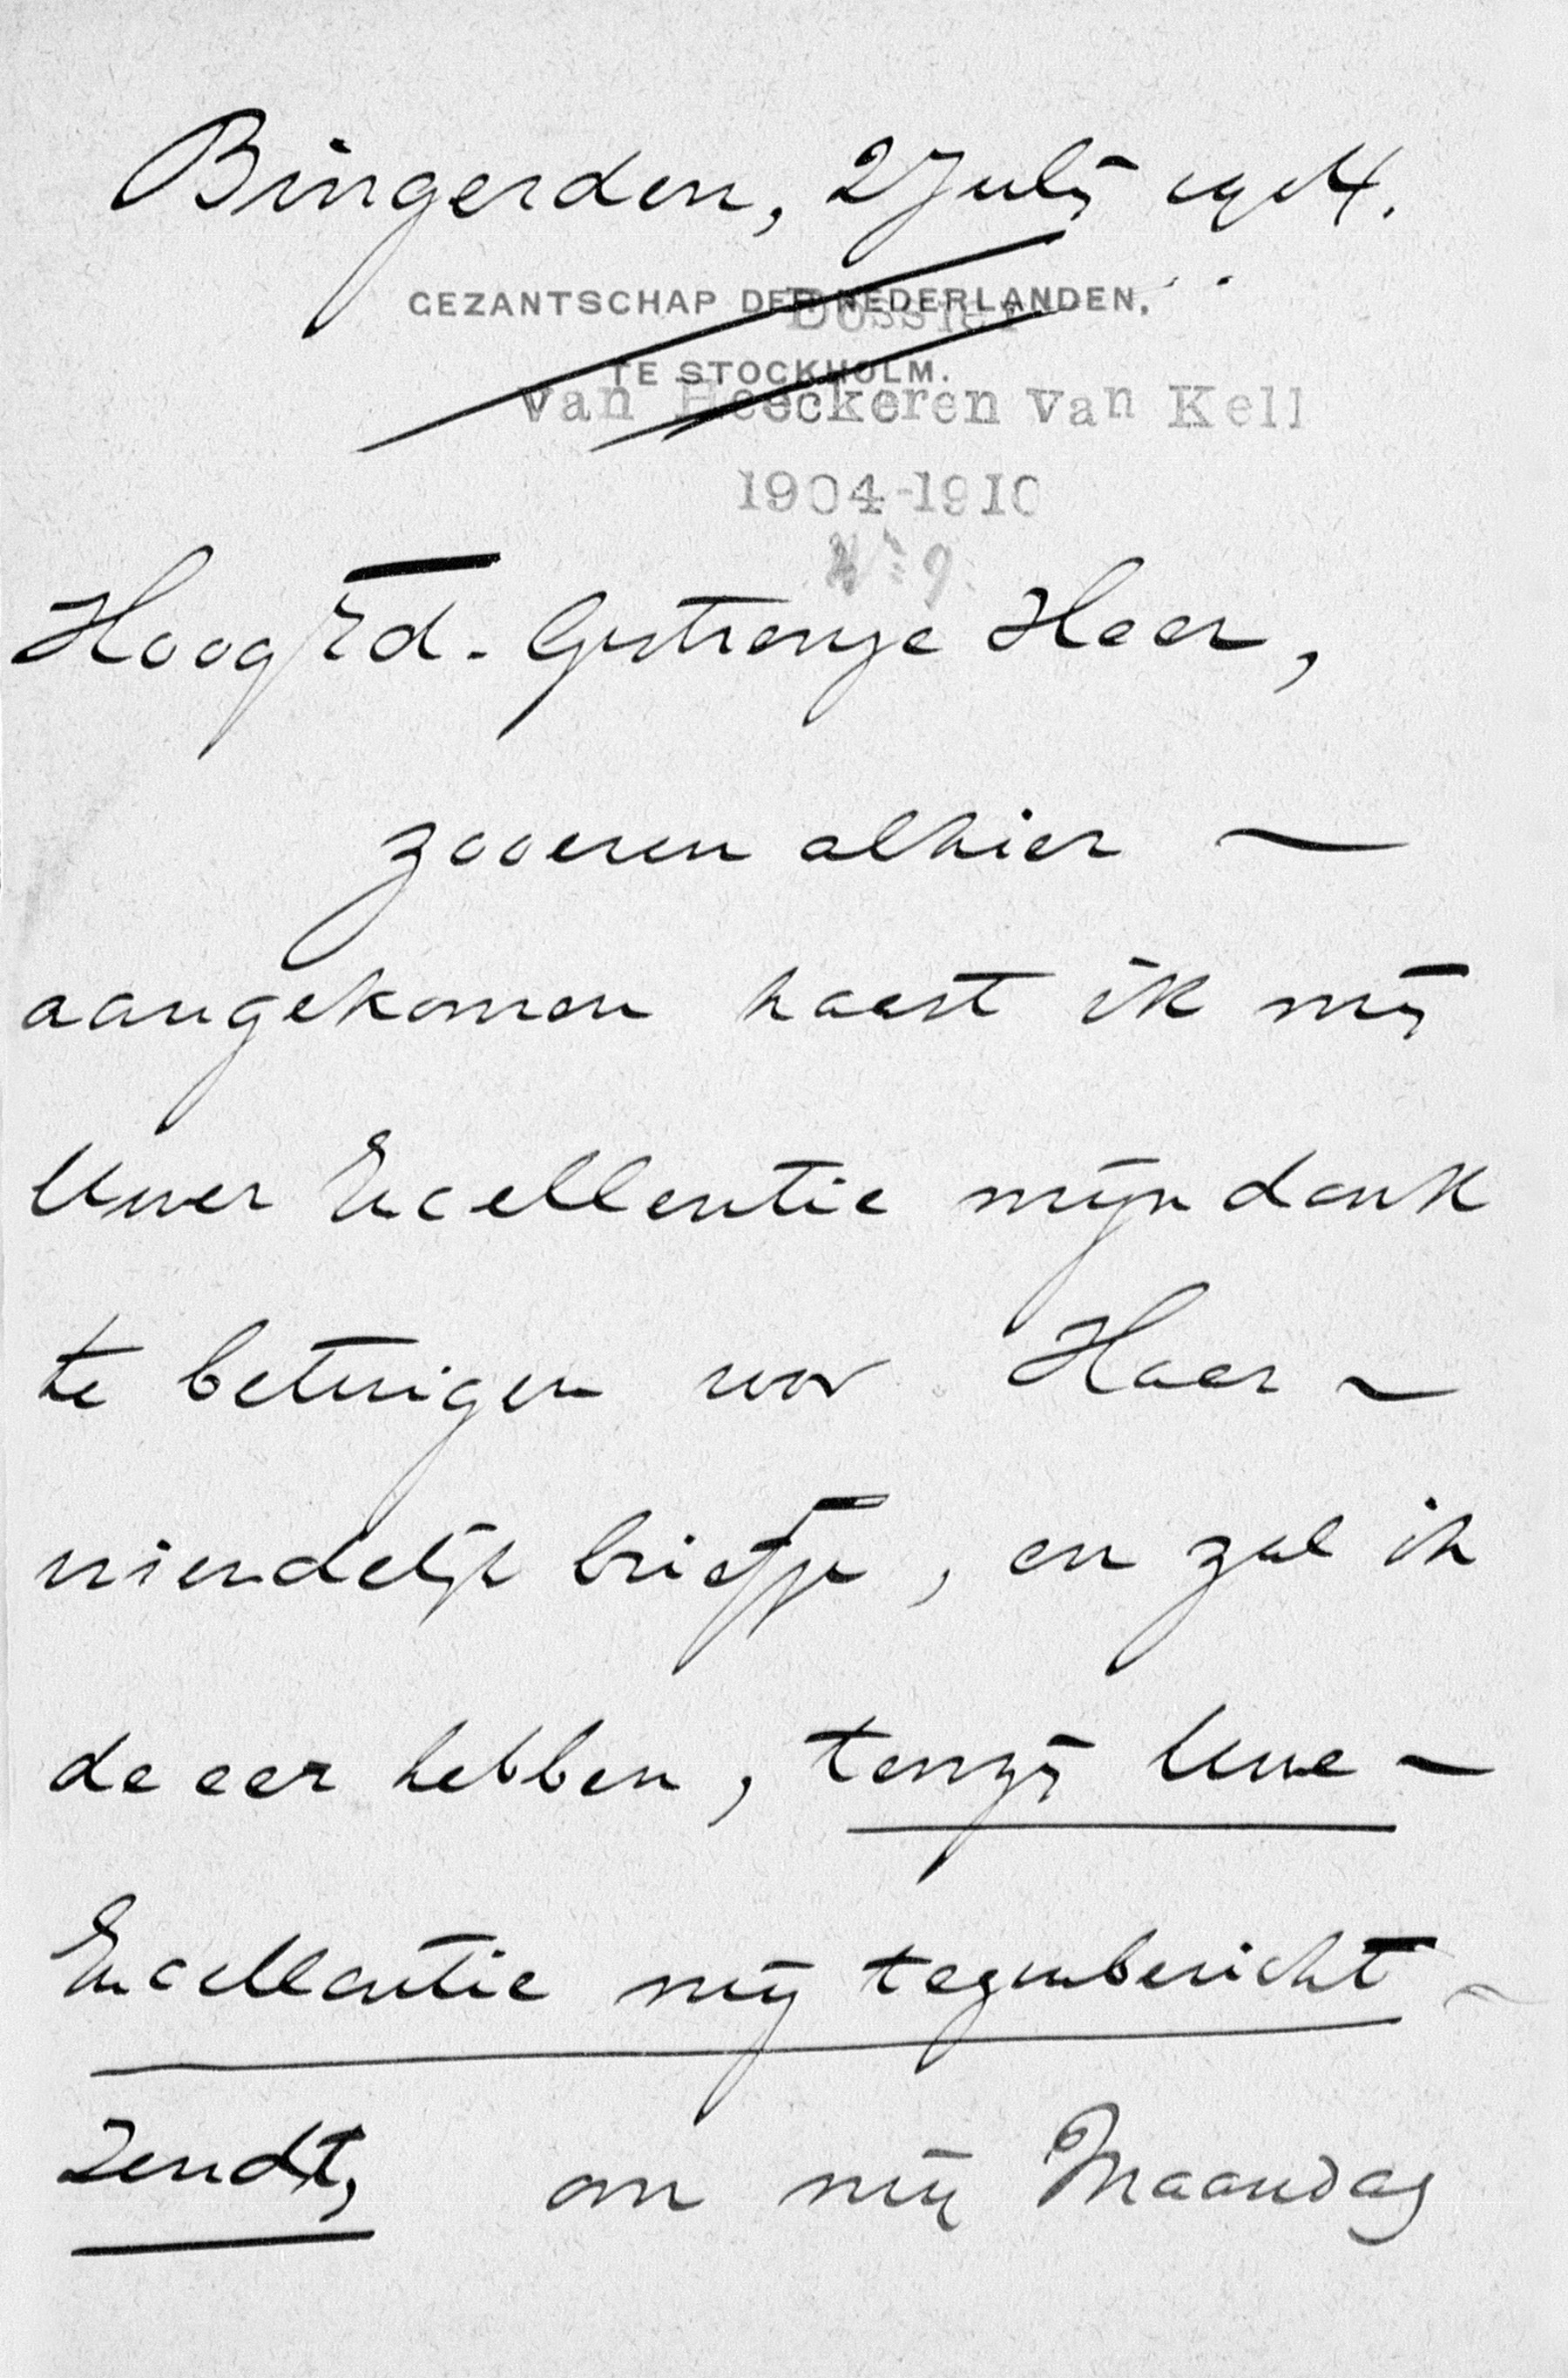 Bingerden, 2 Julij 1904.
GEZANTSCHAP DER NEDERLANDEN,
Dossier
TE STOCKHOLM.
van Heeckeren van Kell
1904-1910
No 9.
Hoog Ed. Gestrenge Heer,
zooeven alhier ~
aangekomen haast ik mij
Uwer Excellentie mijn dank
te betuigen voor Haar ~
vriendelijk briefje, en zal ik
de eer hebben, tenzij Uwe ~
Excellentie mij tegenbericht ~
zendt, om mij Maandag